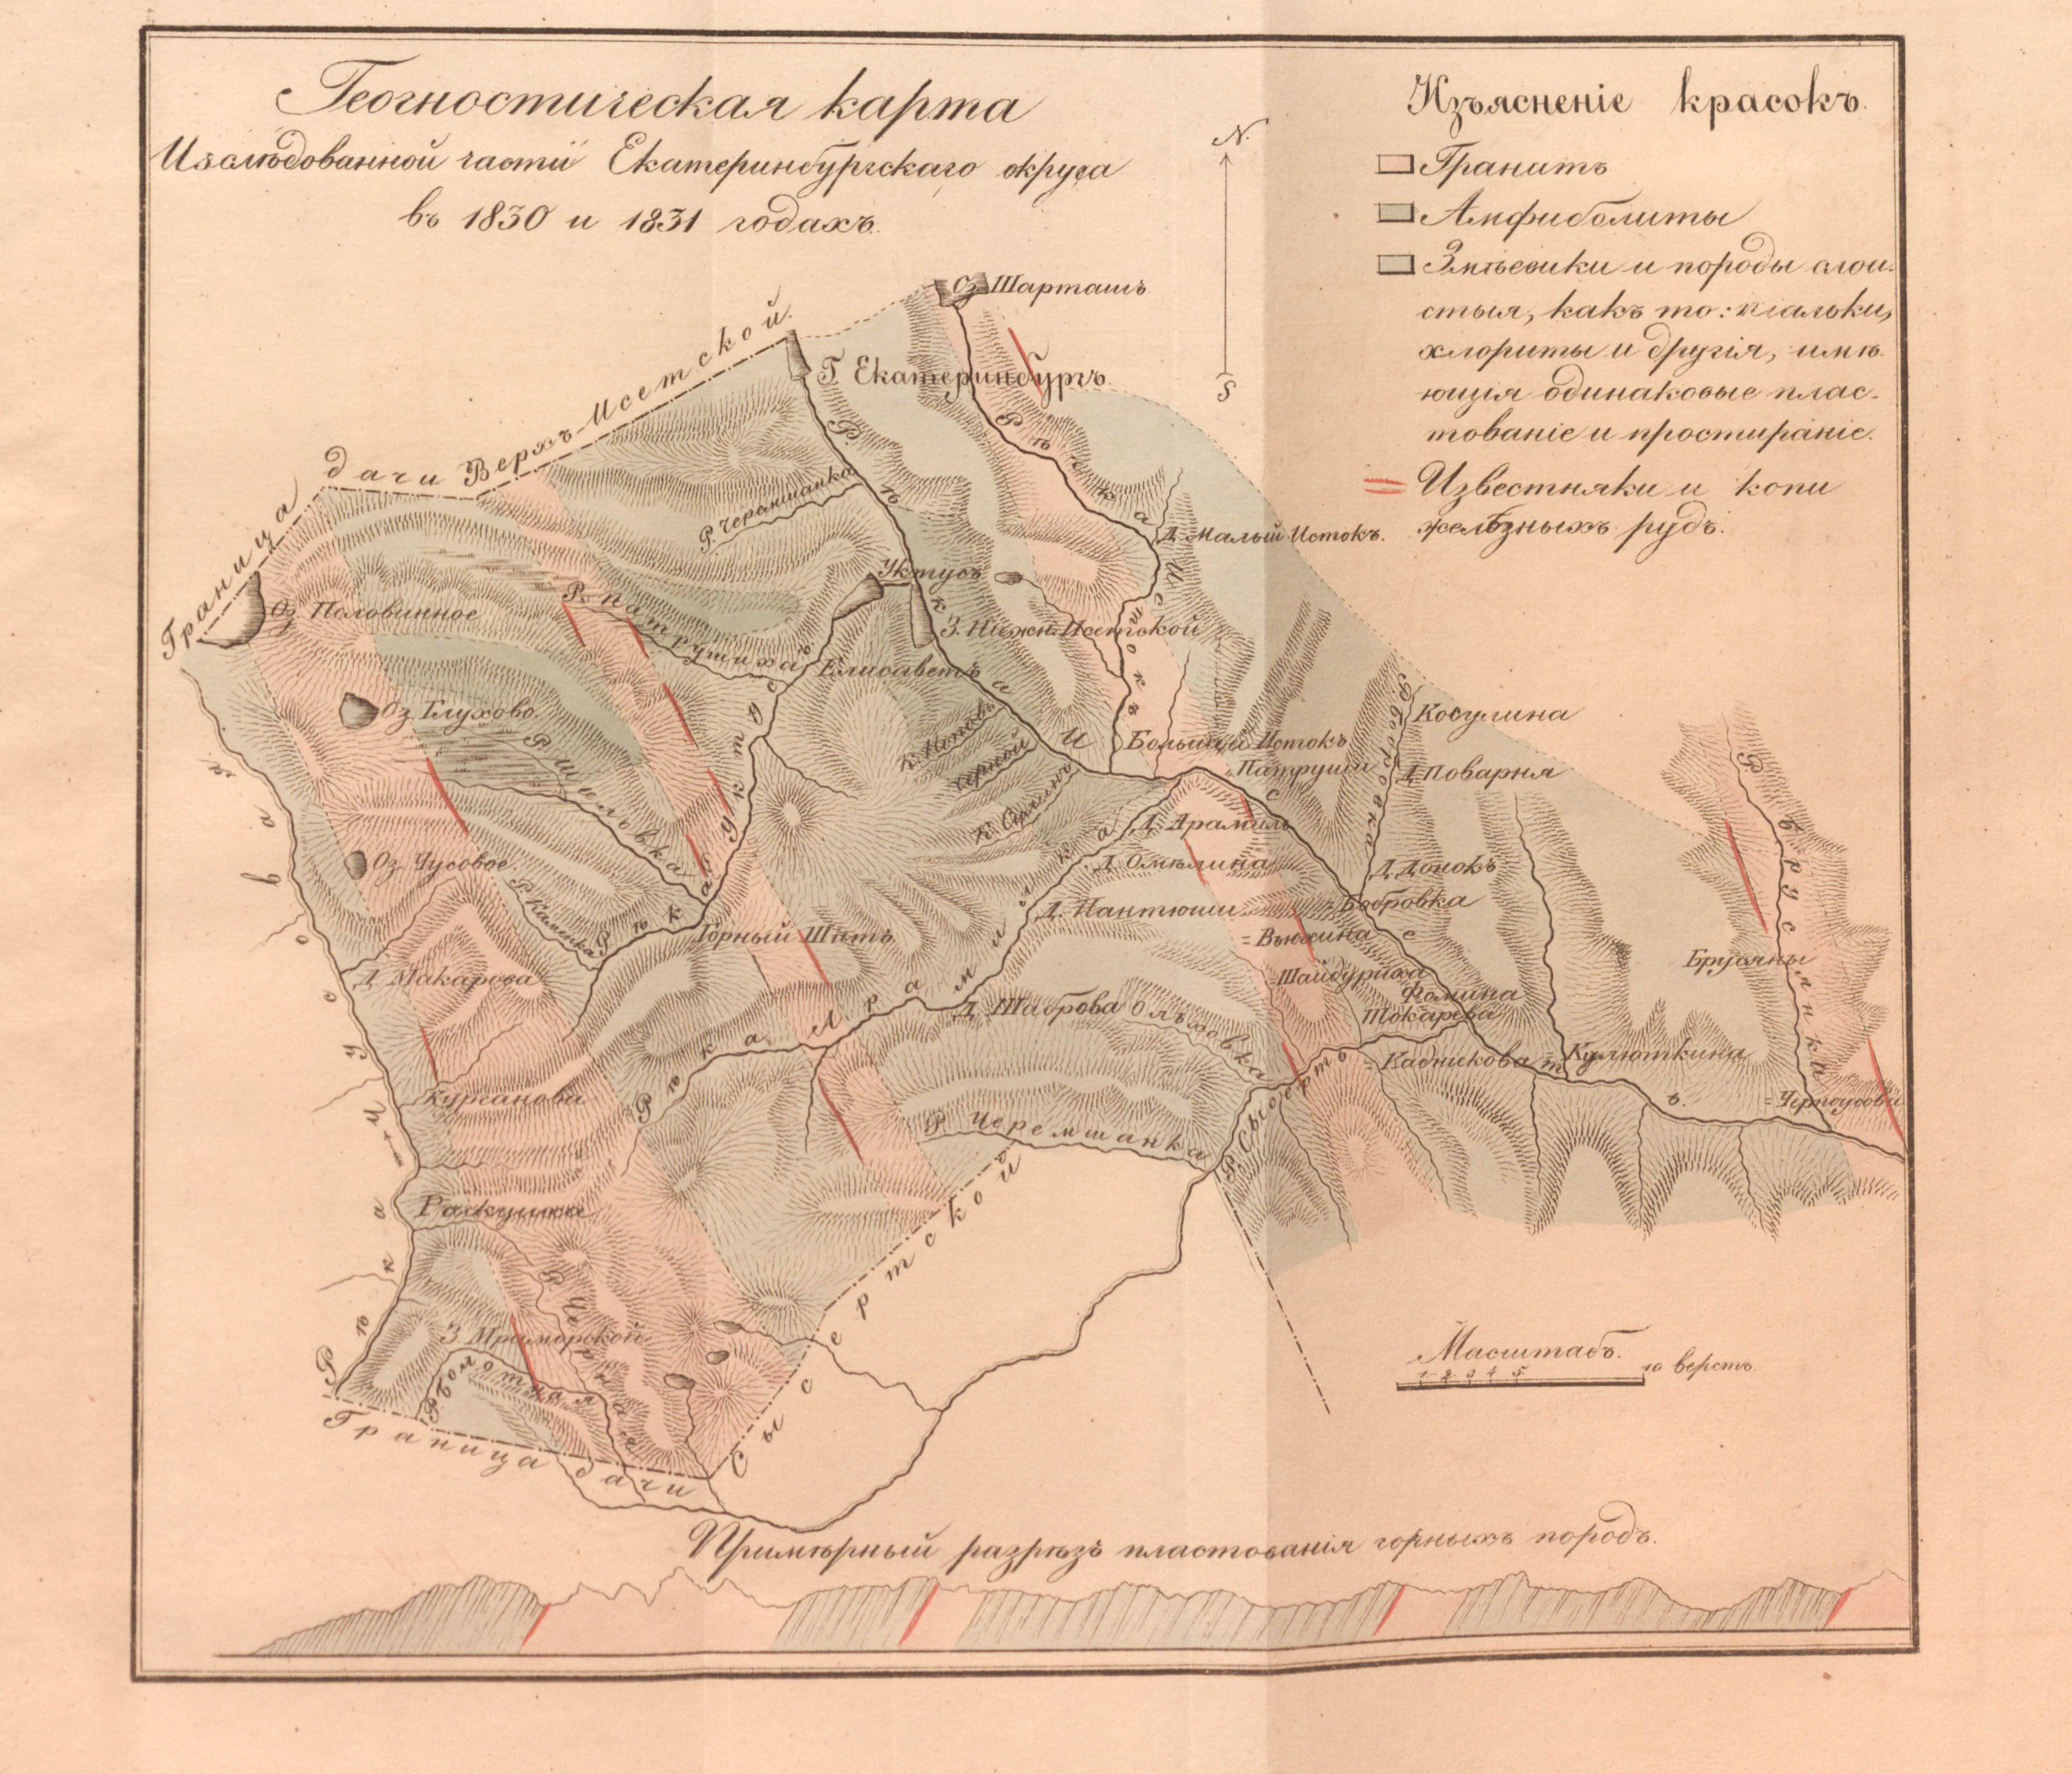 Геогностическая карта
Изслѣдованной части Екатеринбургскаго округа
въ 1830 и 1831 годахъ.
N.
S
Изъясненіе красокъ.
Гранитъ
Амфиболиты
Змѣевики и породы слои-
стыя, какъ то: тальки,
хлориты и другія, имѣ-
ющія одинаковые плас-
тованіе и простираніе.
Известняки и копи
желѣзныхъ рудъ.
Оз. Шарташъ
Г. Екатеринбургъ.
Граница дачи Верхъ-Исетской.
Рѣчка Истокъ
Р. Черемшанка
Д. Малый Истокъ.
Уктусъ
Оз. Половинное
Р. Патрушиха
З. Нижн. Исетской
Елисаветъ
Рѣка Исеть
Оз. Глухово.
Р. Шиловка
Рѣчка Уктусъ
К. Черной
Большой Истокъ
Патруши
Р. Бобровка
Косулина
Д. Поварня
Р. Брусянка
Д. Арамиль
Оз. Чусовое
Р. Каменка
Д. Донокъ
Бобровка
Горный Щитъ
= Вьюхина
Брусяны
Д. Макарова
Шайдуриха
Фомина
Токарева
Д. Шаброва
Ольховка
Рѣчка Арамилка
Кадникова
Кулюткина
= Черноусова
Курганова
Р. Черемшанка
Р. Сысерть
Раскуиха
Рѣка Чусовая
З. Мраморской
Р. Болотная
Граница дачи Сысертской
Масштабъ.
1 2 3 4 5 10 верстъ.
Примѣрный разрѣзъ пластованія горныхъ породъ.